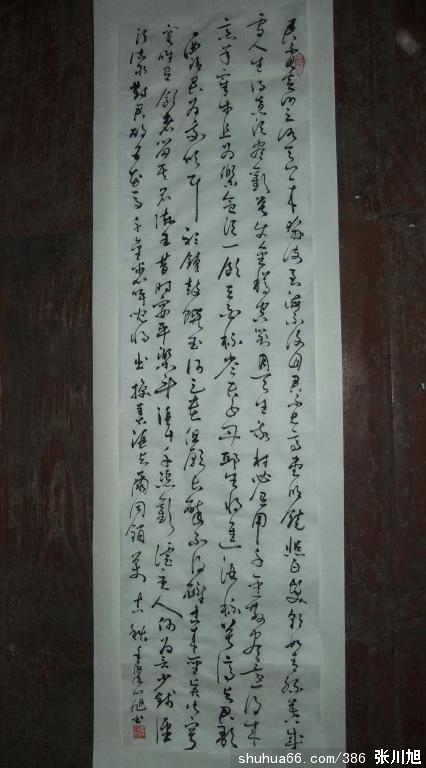 君不见黄河之水天上来奔流到海不复回君不见高堂明镜悲白发朝如青丝暮成
雪人生得意须尽欢莫使金樽空对月天生我材必有用千金散尽还复来
烹羊宰牛且为乐会须一饮三百杯岑夫子丹丘生将进酒杯莫停与君歌
一曲请君为我听钟鼓馔玉何足贵但愿长醉不复醒古来圣贤皆寂
寞惟有饮者留其名陈王昔时宴平乐斗酒十千恣欢谑主人何为言少钱径
须沽取对君酌五花马千金裘呼儿将出换美酒与尔同销万古愁 旭书
shuhua66.com/386 张川旭